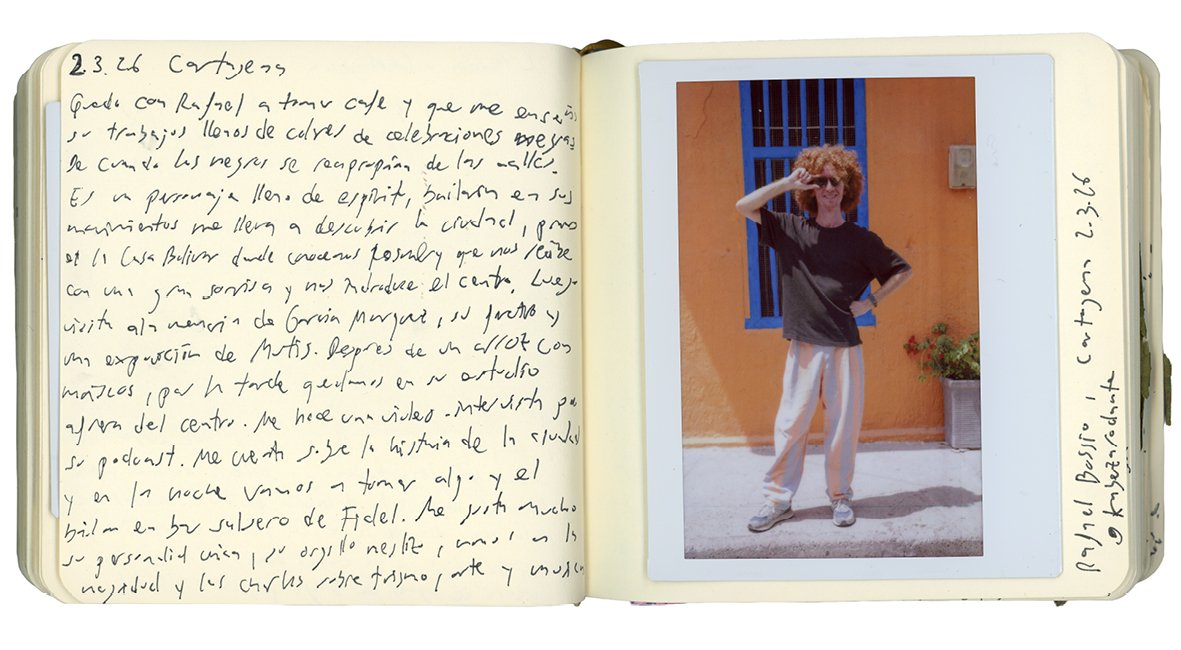 2.3.26 Cartagena
Quedo con Rafael a tomar cafe y que me enseñe
su trabajos llenos de colores de celebraciones negras
de cuando los negros se reapropian de las calles.
Es un personaje lleno de espiritu, bailarin en sus
movimientos me lleva a descubrir la ciudad,
et la Casa Bolivar donde conocemos que nos recibe
con una gran sonrisa y nos introduce el centro. Luego
visita a la memoria de Garcia Marquez, su y
una exposición de Mutis. Despues de un arroz con
mariscos, por la tarde quedamos en su estudio
afuera del centro. Me hace una video-intervista por
su podcast. Me cuenta sobre la historia de la ciudad
y en la noche vamos a tomar algo y el
baila en bar salsero de Fidel. Me gusta mucho
su personalid unica, su orgullo mestizo, en la
y las charlas sobre turismo, arte y musica
Rafael Bossio, Cartagena 2.3.26